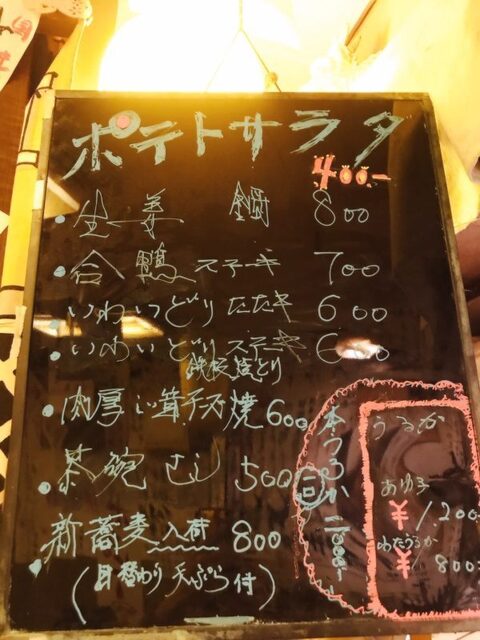 ポテトサラダ
400-
・生姜 800
・合鴨ステーキ 700
・いわいどりたたき 600
・いわいどりステーキ 600
鉄板焼とり
・肉厚しい茸チーズ焼 600
・茶碗むし 500
・新蕎麦入荷 800
(日替わり天ぷら付)
本うるか
うるか
あゆ子
¥1200
わたうるか
¥800